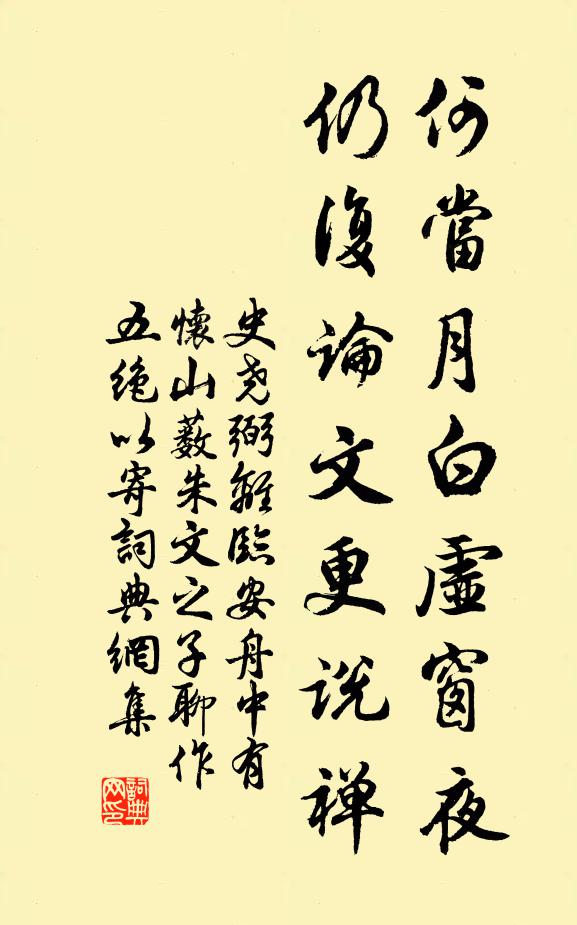 何當月白虛窗夜
仍復論文更说禅
史尧弼離臨安舟中有
懷山藪朱文之子聊作
五绝以寄詞典網集
詞典
网印